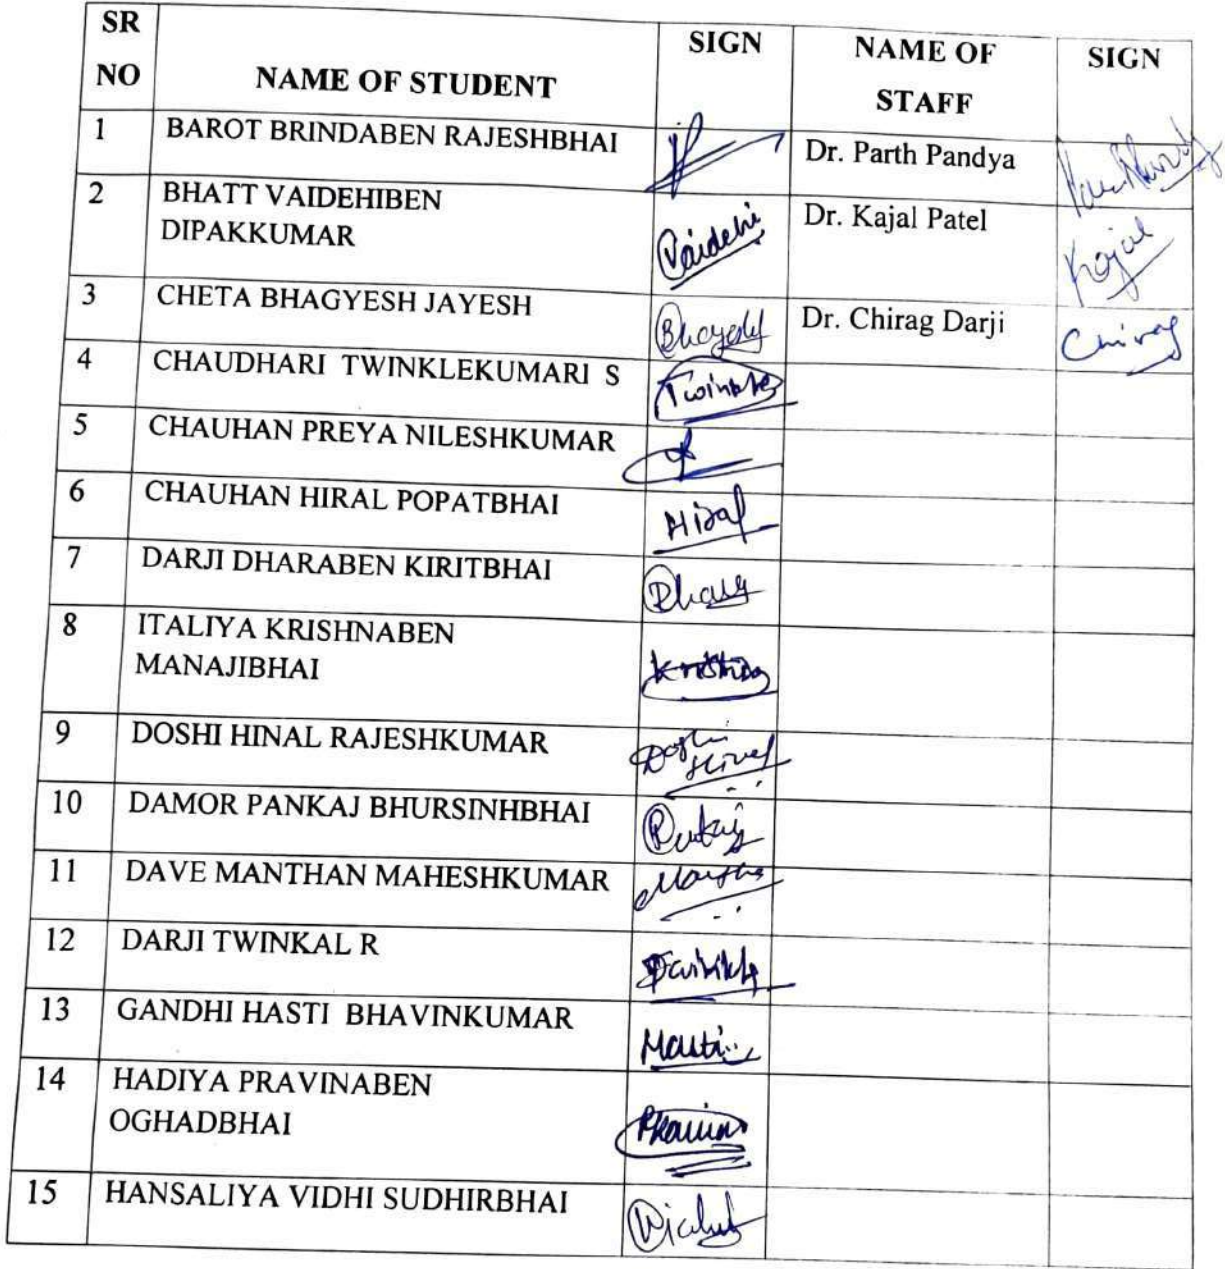 SR NO NAME OF STUDENT SIGN NAME OF STAFF SIGN
1 BAROT BRINDABEN RAJESHBHAI Dr. Parth Pandya
2 BHATT VAIDEHIBEN
DIPAKKUMAR Vaidehi Dr. Kajal Patel Kajal
3 CHETA BHAGYESH JAYESH Bhagyesh Dr. Chirag Darji Chirag
4 CHAUDHARI TWINKLEKUMARI S Twinkle
5 CHAUHAN PREYA NILESHKUMAR
6 CHAUHAN HIRAL POPATBHAI Hiral
7 DARJI DHARABEN KIRITBHAI Dhara
8 ITALIYA KRISHNABEN
MANAJIBHAI Krishna
9 DOSHI HINAL RAJESHKUMAR Doshi
Hinal
10 DAMOR PANKAJ BHURSINHBHAI Pankaj
11 DAVE MANTHAN MAHESHKUMAR Manthan
12 DARJI TWINKAL R
13 GANDHI HASTI BHAVINKUMAR Hasti
14 HADIYA PRAVINABEN
OGHADBHAI
15 HANSALIYA VIDHI SUDHIRBHAI